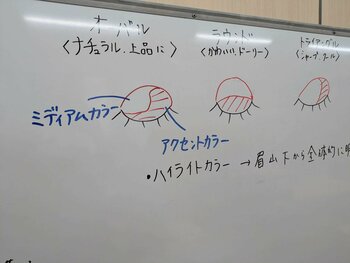 オーバル
<ナチュラル.上品に>
ラウンド
<かわいい.ドーリー>
トライアングル
<シャープ.クール>
ミディアムカラー
アクセントカラー
・ハイライトカラー → 眉山下から全体的に明